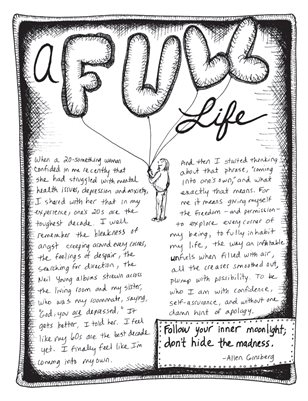 a FULL
Life
When a 20-something woman
confided in me recently that
she had struggled with mental
health issues, depression and anxiety,
I shared with her that in my
experience, one's 20s are the
toughest decade. I well
remember the bleakness of
angst creeping around every corner,
the feelings of despair, the
searching for direction, the
Neil Young albums strewn across
the living room and my sister,
who was my roommate, saying,
"God, you are depressed." It
gets better, I told her. I feel
like my 60s are the best decade
yet. I finally feel like I'm
coming into my own.
And then I started thinking
about that phrase, "coming
into one's own," and what
exactly that means. For
me it means giving myself
the freedom - and permission -
to explore every corner of
my being, to fully inhabit
my life, the way an inflatable
unfurls when filled with air,
all the creases smoothed out,
plump with possibility. To be
who I am with confidence,
self-assurance, and without one
damn hint of apology.
Follow your inner moonlight;
don't hide the madness.
-Allen Ginsberg